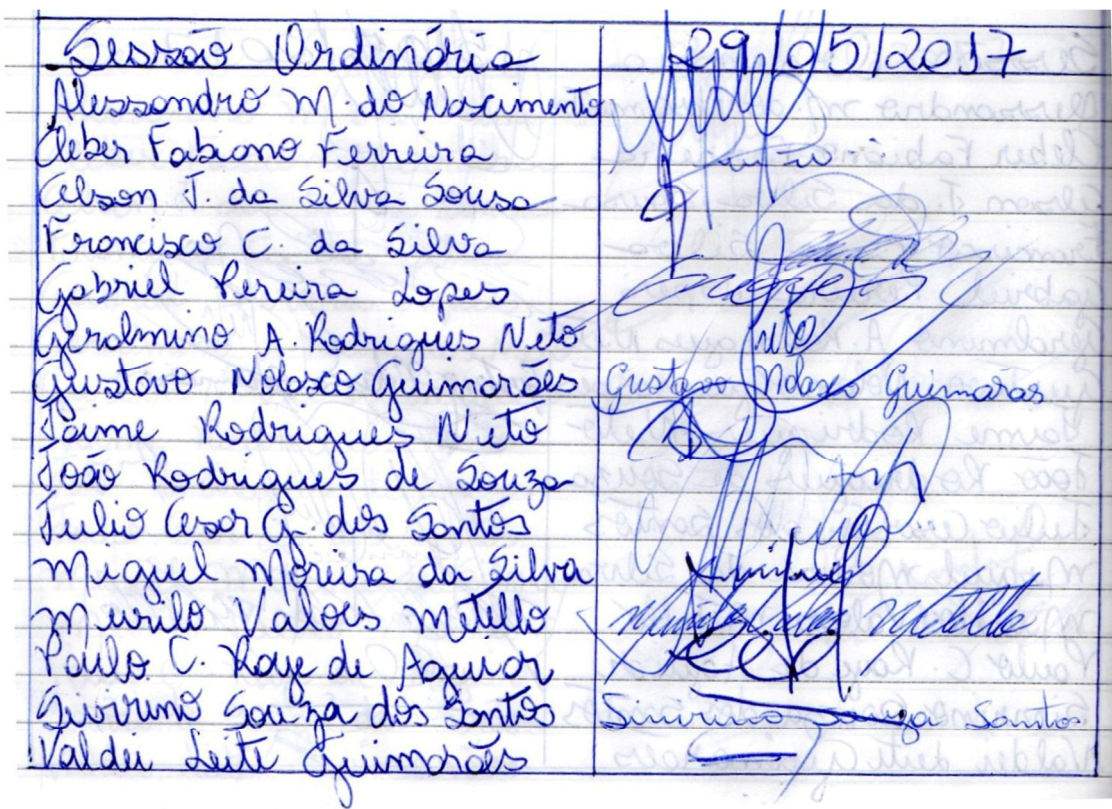 Sessão Ordinária 29/05/2017
Alessandro M. do Nascimento
Cleber Fabiano Ferreira
Celson J. da Silva Sousa
Francisco C. da Silva
Gabriel Pereira Lopes
Geralmino A. Rodrigues Neto Neto
Gustavo Nolasco Guimarães Gustavo Nolasco Guimarães
Jaime Rodrigues Neto
João Rodrigues de Souza
Julio Cesar G. dos Santos
Miguel Moreira da Silva
Murilo Valoes Metello Murilo Valoes Metello
Paulo C. Raye de Aguiar
Sivirino Souza dos Santos Sivirino Souza Santos
Valdei Leite Guimarães